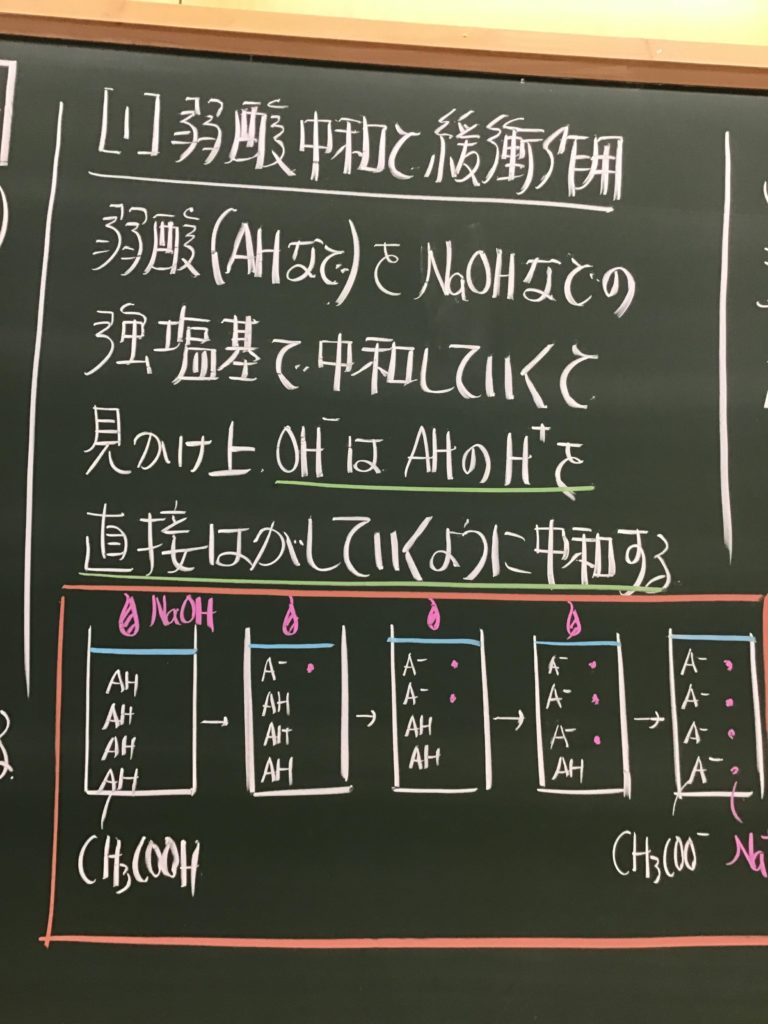 [1] 弱酸中和と緩衝作用
弱酸(AHなど)をNaOHなどの
強塩基で中和していくと
見かけ上、OH⁻はAHのH⁺を
直接はがしていくように中和する
NaOH
AH
AH
AH
AH
→
A⁻
AH
AH
AH
→
A⁻
A⁻
AH
AH
→
A⁻
A⁻
A⁻
AH
→
A⁻
A⁻
A⁻
A⁻
CH₃COOH
CH₃COO⁻ Na⁺